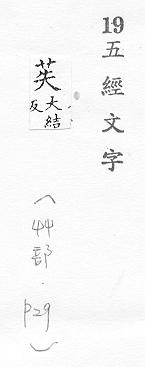 19五經文字
苵大結
反
(艸部.p29)